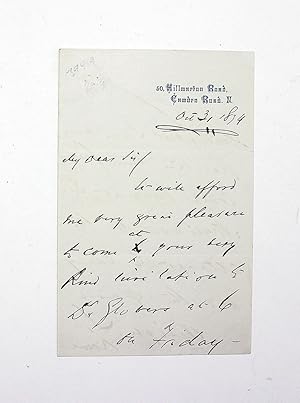 50, Hillmarton Road,
Camden Road. N.
Oct 31 1874
My dear Sir
It will afford
me very great pleasure
at
to come your very
kind invitation to
Dr Glovers at 6
on Friday —